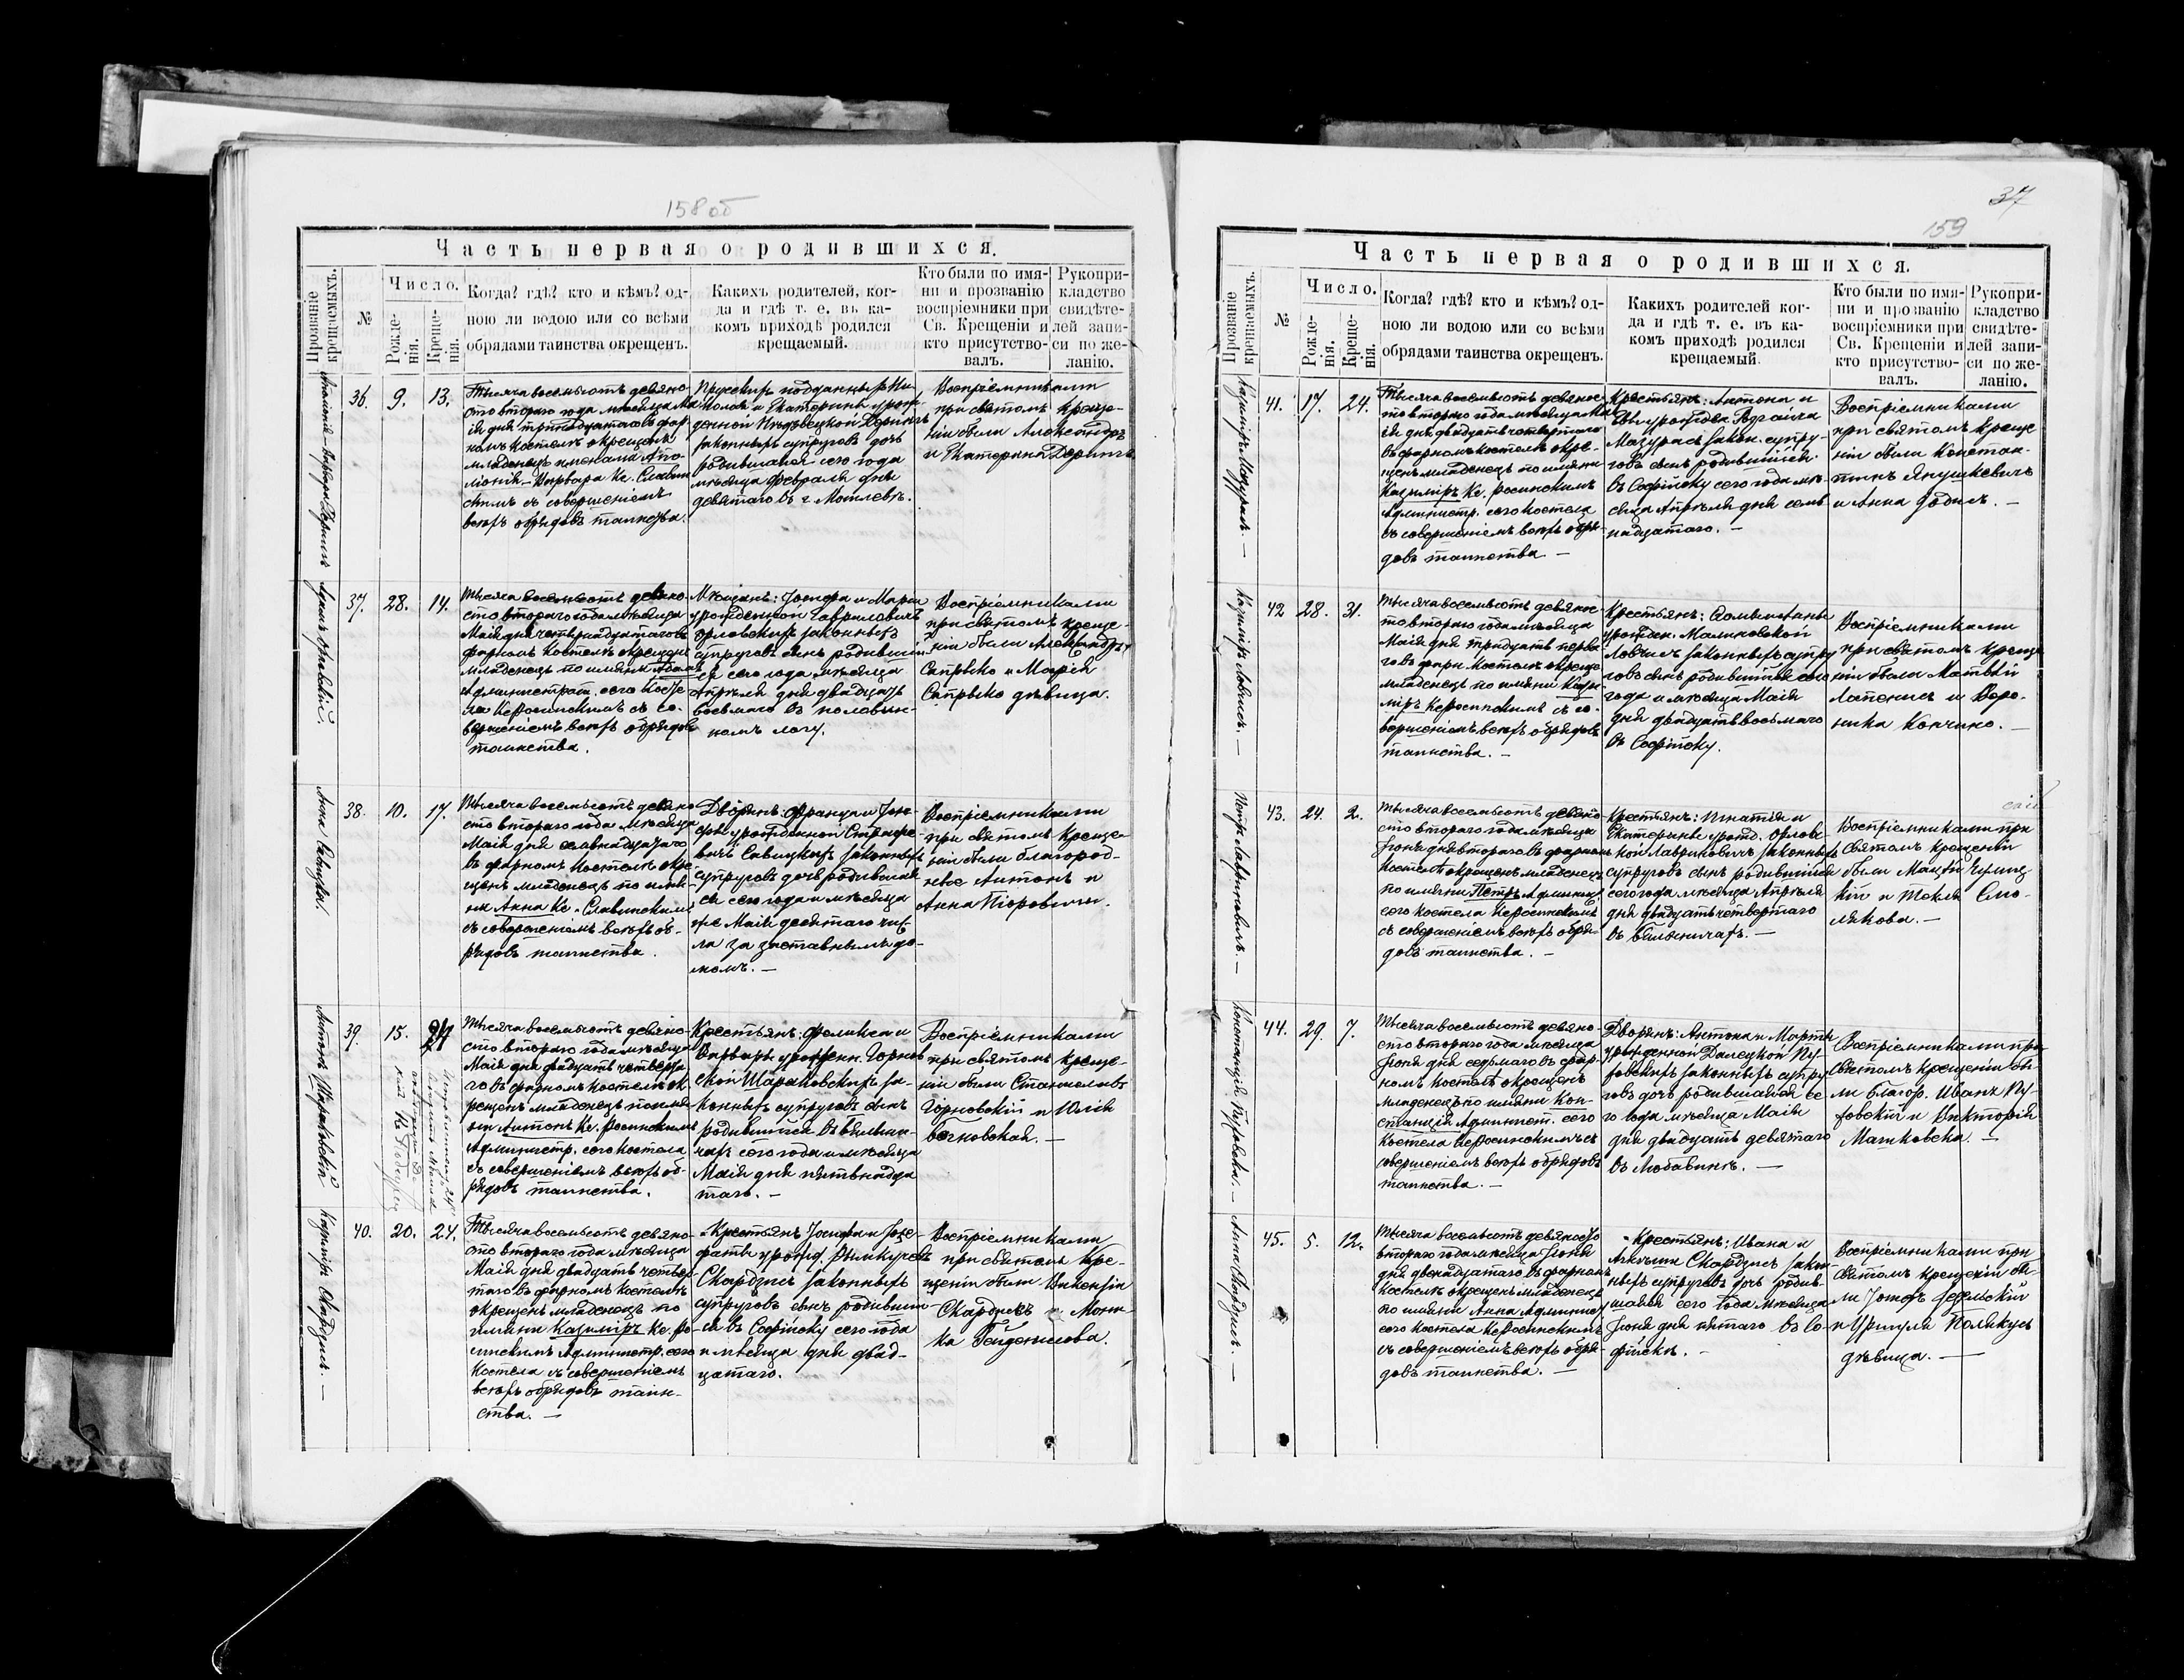 158 об
Часть первая о родившихся.
Прозваніе крещаемыхъ.
№
Число.
Рожде-
нія.
Креще-
нія.
Когда? гдѣ? кто и кѣмъ? од-
ною ли водою или со всѣми
обрядами таинства окрещенъ.
Какихъ родителей, ког-
да и гдѣ т. е. въ ка-
комъ приходѣ родился
крещаемый.
Кто были по имя-
ни и прозванію
воспріемники при
Св. Крещеніи и
кто присутство-
валъ.
Рукопри-
кладство
свидѣте-
лей запи-
си по же-
ланію.
36. 9. 13.
Тысяча восемьсотъ девяно-
сто втораго года мѣсяца Ма
ія дня тринадцатаго въ фар
номъ костелѣ окрещенъ
младенецъ именами Апо
лонія-Варвара Кс. Славин
скимъ съ совершеніемъ
всѣхъ обрядовъ таинства.
Прусскихъ подданныхъ Ни
колая и Екатерины урож
законныхъ супруговъ дочь
родившаяся сего года
мѣсяца Февраля дня
девятаго въ г. Могилевѣ.
Воспріемниками
при святомъ креще-
ніи были Александръ
и Екатерина Дерингъ
37. 28. 14.
Тысяча восемьсотъ девяно-
сто втораго года мѣсяца
Маія дня четырнадцатаго въ
фарномъ костелѣ окрещенъ
младенецъ по имяни Адамъ
Администрат. сего косте
ла Кс Росинскимъ съ со-
вершеніемъ всѣхъ обрядовъ
таинства.
Мѣщанъ: Іосифа и Маріи
урожденной Гавриловичъ
Орловскихъ законныхъ
супруговъ сынъ родивший
ся сего года мѣсяца
Апрѣля дня двадцать
восьмаго въ половин-
номъ логу.
Воспріемниками
при святомъ креще-
ніи были Александръ
Сапрыко и Марія
Сапрыко дѣвица.
38. 10. 17.
Анна Савицка
Тысяча восемьсотъ девяно
сто втораго года мѣсяца
Маія дня семнадцатаго
въ фарномъ костелѣ окре
щенъ младенецъ по имя
ни Анна Кс. Славинскимъ
съ совершеніемъ всѣхъ об-
рядовъ таинства.
Дворянъ: Франца и Іозе
фы урожденной Страфе
вичъ Савицкихъ законныхъ
супруговъ дочь родивша
ся сего года и мѣсяца
же Маія десятаго чис
ла за заставнымъ до-
момъ. —
Воспріемниками
при святомъ креще-
ніи были благород-
ные Антонъ и
Анна Піоровичи.
39. 15. 24
Антонъ Шараховскій
Тысяча восемьсотъ девяно-
сто втораго года мѣсяца
Маія дня двадцать четверта
го въ фарномъ костелѣ ок
рещенъ младенецъ по имя
ни Антонъ Кс. Росинскимъ
Администр. сего костела
съ совершеніемъ всѣхъ об-
рядовъ таинства.
Крестьянъ: Феликса и
Варвары урожденн. Горнов
ской Шараховскихъ за-
конныхъ супруговъ сынъ
родившійся въ
чахъ сего года и мѣсяца
Маія дня пятьнадца
таго. —
Воспріемниками
при святомъ креще-
ніи были Станиславъ
Горновскій и Юлія
40. 20. 24.
Казиміръ Скардзисъ. —
Тысяча восемьсотъ девяно-
сто втораго года мѣсяца
Маія дня двадцать четвер-
таго въ фарномъ костелѣ
окрещенъ младенецъ по
имяни Казиміръ Кс. Ро-
синскимъ Администр. сего
костела съ совершеніемъ
всѣхъ обрядовъ таин-
ства. —
Крестьянъ Іосифа и Іозе-
фаты урожд.
Скардзисъ законныхъ
супруговъ сынъ родивший-
ся въ Софійску сего года
и мѣсяца дня двад-
цатаго.
Воспріемниками
при святомъ кре-
щеніи были Викентій
Скардзисъ и Мони-
ка Гейденисова.
37
159
Часть первая о родившихся.
Прозваніе крещаемыхъ.
№
Число.
Рожде-
нія.
Креще-
нія.
Когда? гдѣ? кто и кѣмъ? од-
ною ли водою или со всѣми
обрядами таинства окрещенъ.
Какихъ родителей ког-
да и гдѣ т. е. въ ка-
комъ приходѣ родился
крещаемый.
Кто были по имя-
ни и прозванію
воспріемники при
Св. Крещеніи и
кто присутство-
валъ.
Рукопри-
кладство
свидѣте-
лей запи-
си по же-
ланію.
41. 17. 24.
Казиміръ Мазурасъ. —
Тысяча восемьсотъ девянос-
то втораго года мѣсяца Ма
ія дня двадцать четвертаго
въ фарномъ костелѣ окре-
щенъ младенецъ по имяни
Казиміръ Кс. Росинскимъ
Администр. сего костела
съ совершеніемъ всѣхъ обря-
довъ таинства —
Крестьянъ: Антона и
Мазурасъ закон. супру-
говъ сынъ родившійся
въ Софійску сего года мѣ-
сяца Апрѣля дня семь
надцатаго. —
Воспріемниками
при святомъ креще
ніи были Констан-
тинъ Янушкевичъ
и Анна
42 28. 31.
Казиміръ Ловчисъ. —
Тысяча восемьсотъ девянос-
то втораго года мѣсяца
Маія дня тридцать перва
го въ фарн. костелѣ окреще
младенецъ по имяни Кази
міръ Кс Росинскимъ съ со-
вершеніемъ всѣхъ обрядовъ
таинства. —
Крестьянъ:
урожден. Малиновской
Ловчисъ законныхъ супру
говъ сынъ родившійся сего
года и мѣсяца Маія
дня двадцать восьмаго
въ Софійску.
Воспріемниками
при святомъ креще
ніи были Матвѣй
Лапенисъ и Веро-
ника Кончино. —
43. 24. 2.
Петръ Лавриновичъ. —
Тысяча восемьсотъ девяно-
сто втораго года мѣсяца
Іюня дня втораго въ фарномъ
костелѣ окрещенъ младенецъ
по имяни Петръ Админист
сего костела Кс Росинскимъ
съ совершеніемъ всѣхъ обря-
довъ таинства. —
Крестьянъ: Игнатія и
Екатерины урожд. Орлов-
ской Лавриновичъ законныхъ
супруговъ сынъ родившійся
сего года мѣсяца Апрѣля
дня двадцать четвертаго
Воспріемниками при
Святомъ крещеніи
были Мацѣй
кій и Текля Смо-
лякова. —
44. 29. 7.
Тысяча восемьсотъ девяно-
сто втораго года мѣсяца
Іюня дня седьмаго въ фар-
номъ костелѣ окрещенъ
младенецъ по имяни Кон-
станція Админист. сего
костела Кс Росинскимъ съ
совершеніемъ всѣхъ обрядовъ
таинства. —
Дворянъ: Антона и Марты
урожденной Далецкой Пу-
зовскихъ законныхъ супру-
говъ дочь родившаяся се-
го года мѣсяца Маія
дня двадцать девятаго
въ Любавинѣ. —
Воспріемниками при
Святомъ крещеніи бы-
ли благор. Иванъ Пу-
зовскій и Викторія
Машковска. —
45. 5. 12.
Анна Скардзисъ. —
Тысяча восемьсотъ девяносто
втораго года мѣсяца Іюня
дня двенадцатаго въ фарномъ
костелѣ окрещенъ младенецъ
по имяни Анна Админист
сего костела Кс Росинскимъ
съ совершеніемъ всѣхъ обря-
довъ таинства. —
Крестьянъ: Ивана и
Скардзисъ закон
ныхъ супруговъ дочь родив-
шаяся сего года мѣсяца
Іюня дня пятаго въ Со-
фійскѣ. —
Воспріемниками при
Святомъ крещеніи бы-
ли Іосифъ
и Уршуля
дѣвица. —